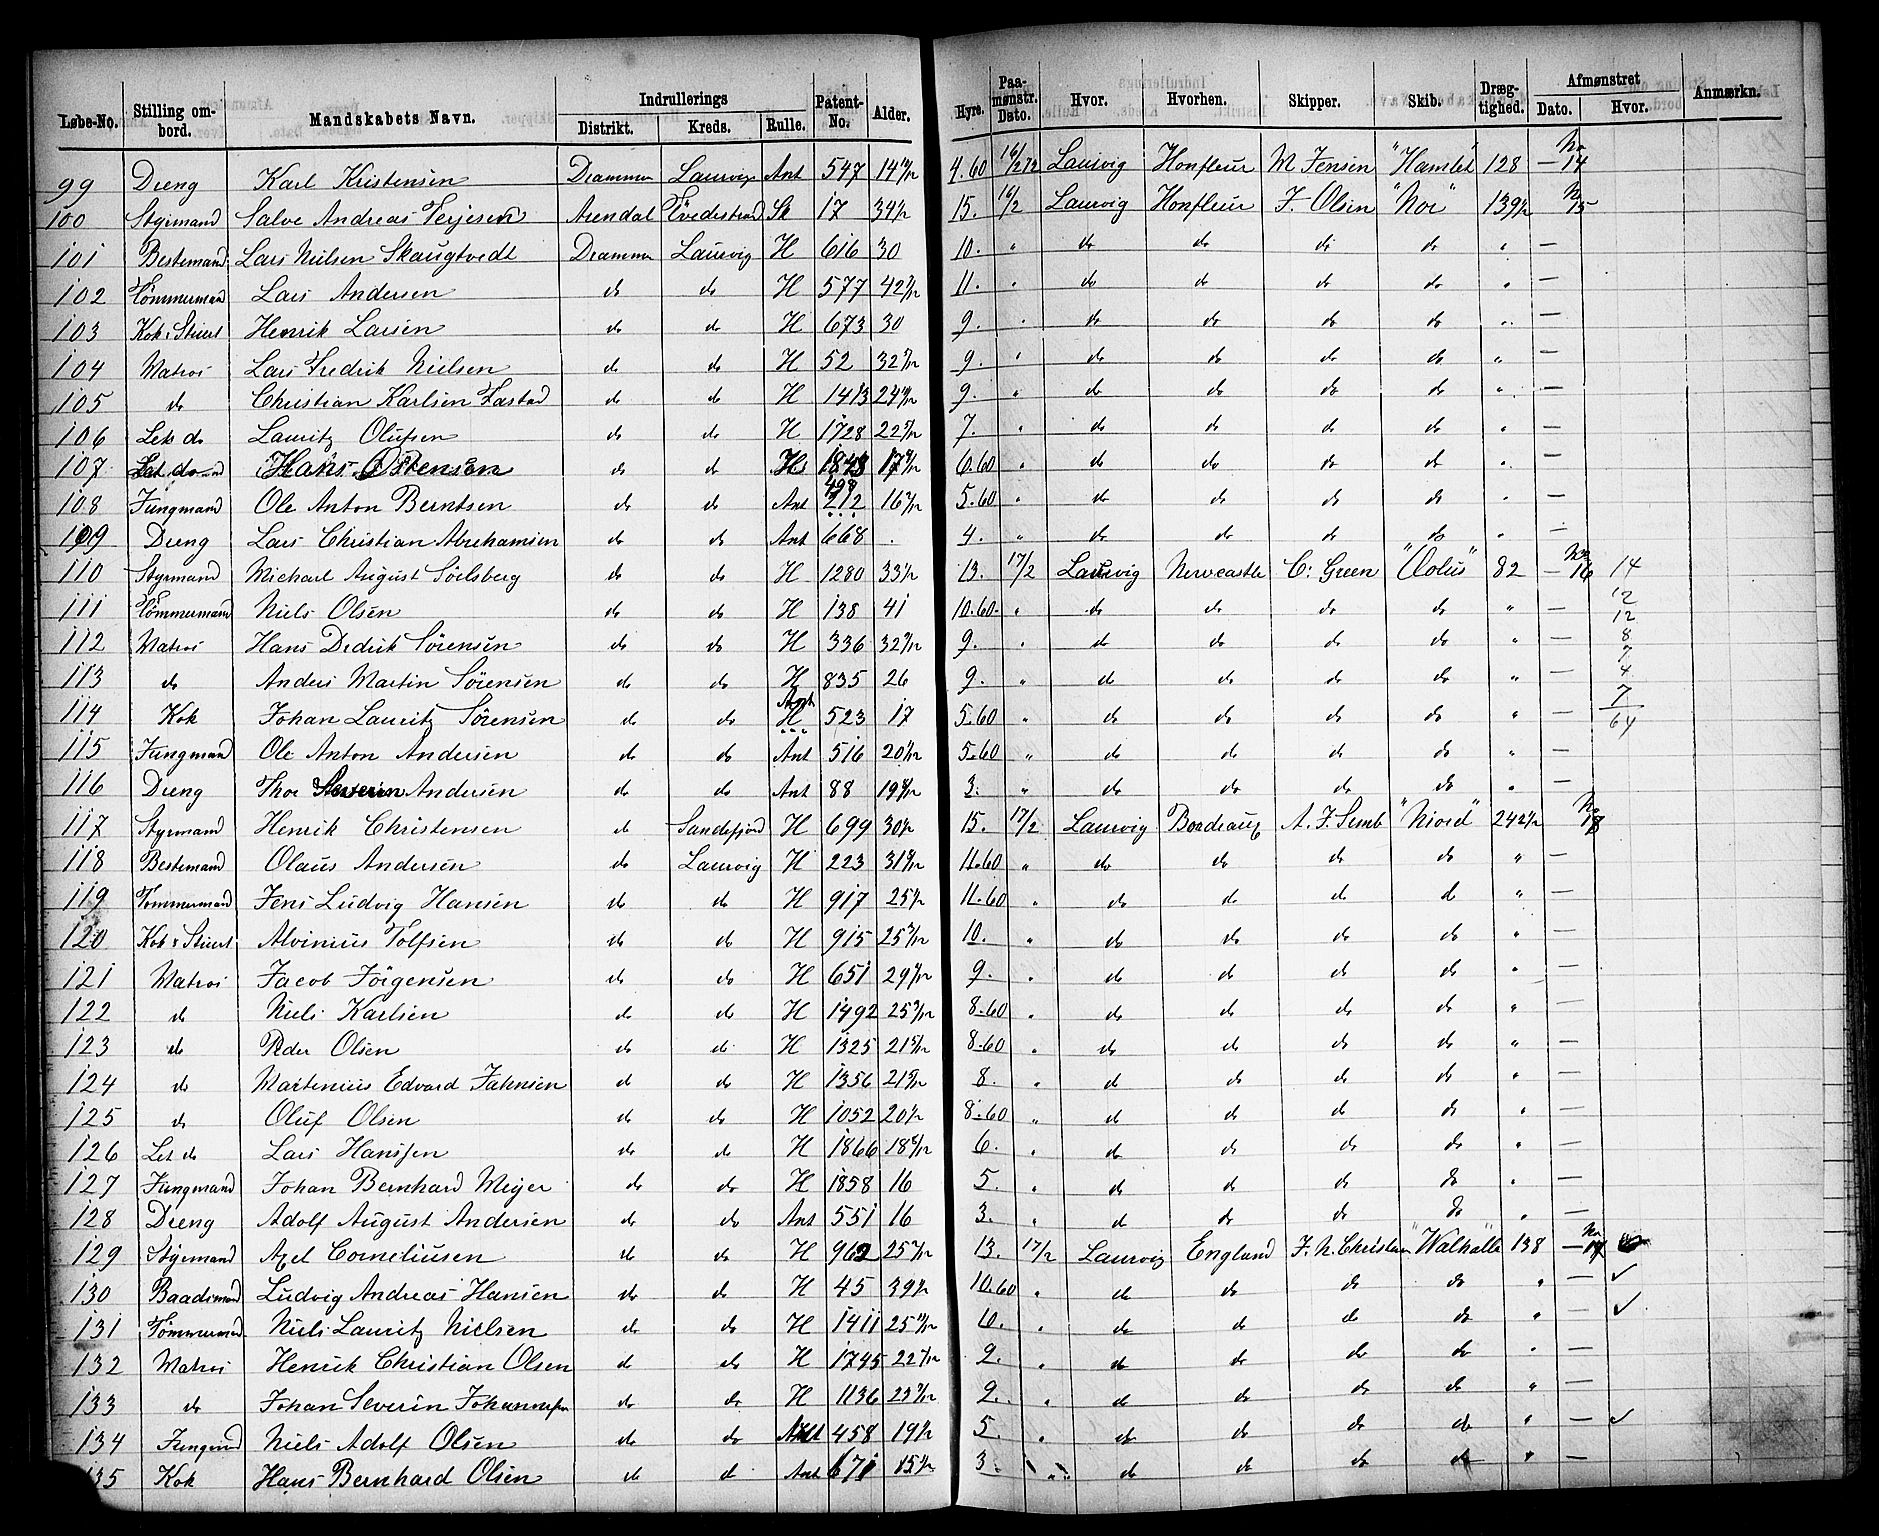 Løbe-No. Stilling ombord. Mandskabets Navn. Indrullerings Distrikt. Kreds. Rulle. Patent-No. Alder. Hyre. Paamønstr. Dato. Hvor. Hvorhen. Skipper. Skib. Drægtighed. Afmønstret Dato. Hvor. Anmærkn.
99 Dreng Karl Kristensen Drammen Laurvig Ant 547 14 4.60 16/2 72 Laurvig Honfleur M Jensen "Hamlet" 128 — No 14
100 Styrmand Salve Andreas Terjesen Arendal Tvedestrand Sk 17 34 15. 16/2 Laurvig Honfleur J. Olsen "Nor" 139½ No 15
101 Bestemand Lars Nielsen Skaugtvedt Drammen Laurvig H 616 30 10. " do do do do " —
102 Tömmermand Lars Andersen do do H 577 42 11. " do do do do " —
103 Kok & Stuert Henrik Larsen do do H 673 30 9. " do do do do " —
104 Matros Lars Fredrik Nielsen do do H 52 32 9. " do do do do " —
105 do Christian Karlsen Fastad do do H 1413 24 9. " do do do do " —
106 Let do Lauritz Olufsen do do H 1728 22 7. " do do do do " —
107 Let do Hans Ottensen do do H 1848 17 6.60 " do do do do " —
108 Jungmand Ole Anton Berntsen do do Ant 498 212 16 5.60 " do do do do " —
109 Dreng Lars Christian Abrahamsen do do Ant 668 . 4. " do do do do " —
110 Styrmand Michael August Söelsberg do do H 1280 33 13. 17/2 Laurvig Newcastle C. Green "Æolus" 82 — No 16 14
111 Tömmermand Niels Olsen do do H 138 41 10.60 " do do do do " — 12
12
112 Matros Hans Didrik Sörensen do do H 336 32 9. " do do do do " — 8
7
113 do Anders Martin Sörensen do do H 835 26 9. " do do do do " — 4
7
114 Kok Johan Lauritz Sörensen do do Ant H 523 17 5.60 " do do do do " — 64
115 Jungmand Ole Anton Andersen do do Ant 516 20 5.60 " do do do do " —
116 Dreng Thor Severin Andersen do do Ant 88 19 3. " do do do do " —
117 Styrmand Henrik Christensen do Sandefjord H 699 30 15. 17/2 Laurvig Bordeaux A. F. Semb "Niord" 242½ No 18
118 Bestemand Olaus Andersen do Laurvig H 223 31 11.60 " do do do do " —
119 Tömmermand Jens Ludvig Hansen do do H 917 25 11.60 " do do do do " —
120 Kok & Stuert Alvinius Tolfsen do do H 915 25 10. " do do do do " —
121 Matros Jacob Jörgensen do do H 651 29 9. " do do do do " —
122 do Niels Karlsen do do H 1492 25 8.60 " do do do do " —
123 do Peder Olsen do do H 1325 21 8.60 " do do do do " —
124 do Martenius Edvard Jahnsen do do H 1356 21 8. " do do do do " —
125 do Oluf Olsen do do H 1052 20 8.60 " do do do do " —
126 Let do Lars Hanssen do do H 1866 18 6. " do do do do " —
127 Jungmand Johan Bernhard Meyer do do H 1858 16 5. " do do do do " —
128 Dreng Adolf August Andersen do do Ant 551 16 3. " do do do do " —
129 Styrmand Axel Corneliusen do do H 962 25 13. 17/2 Laurvig England J. N. Christian "Walhalla" 138 — No 17
130 Baadsmand Ludvig Andreas Hansen do do H 45 39 10.60 " do do do do " — ✓
131 Tömmermand Niels Lauritz Nielsen do do H 1411 25 10. " do do do do " — ✓
132 Matros Henrik Christian Olsen do do H 1795 22 9. " do do do do " —
133 do Johan Severin Johannesen do do H 1136 23 9. " do do do do " —
134 Jungmand Niels Adolf Olsen do do Ant 458 19 5. " do do do do " — ✓
135 Kok Hans Bernhard Olsen do do Ant 671 15 3. " do do do do " —